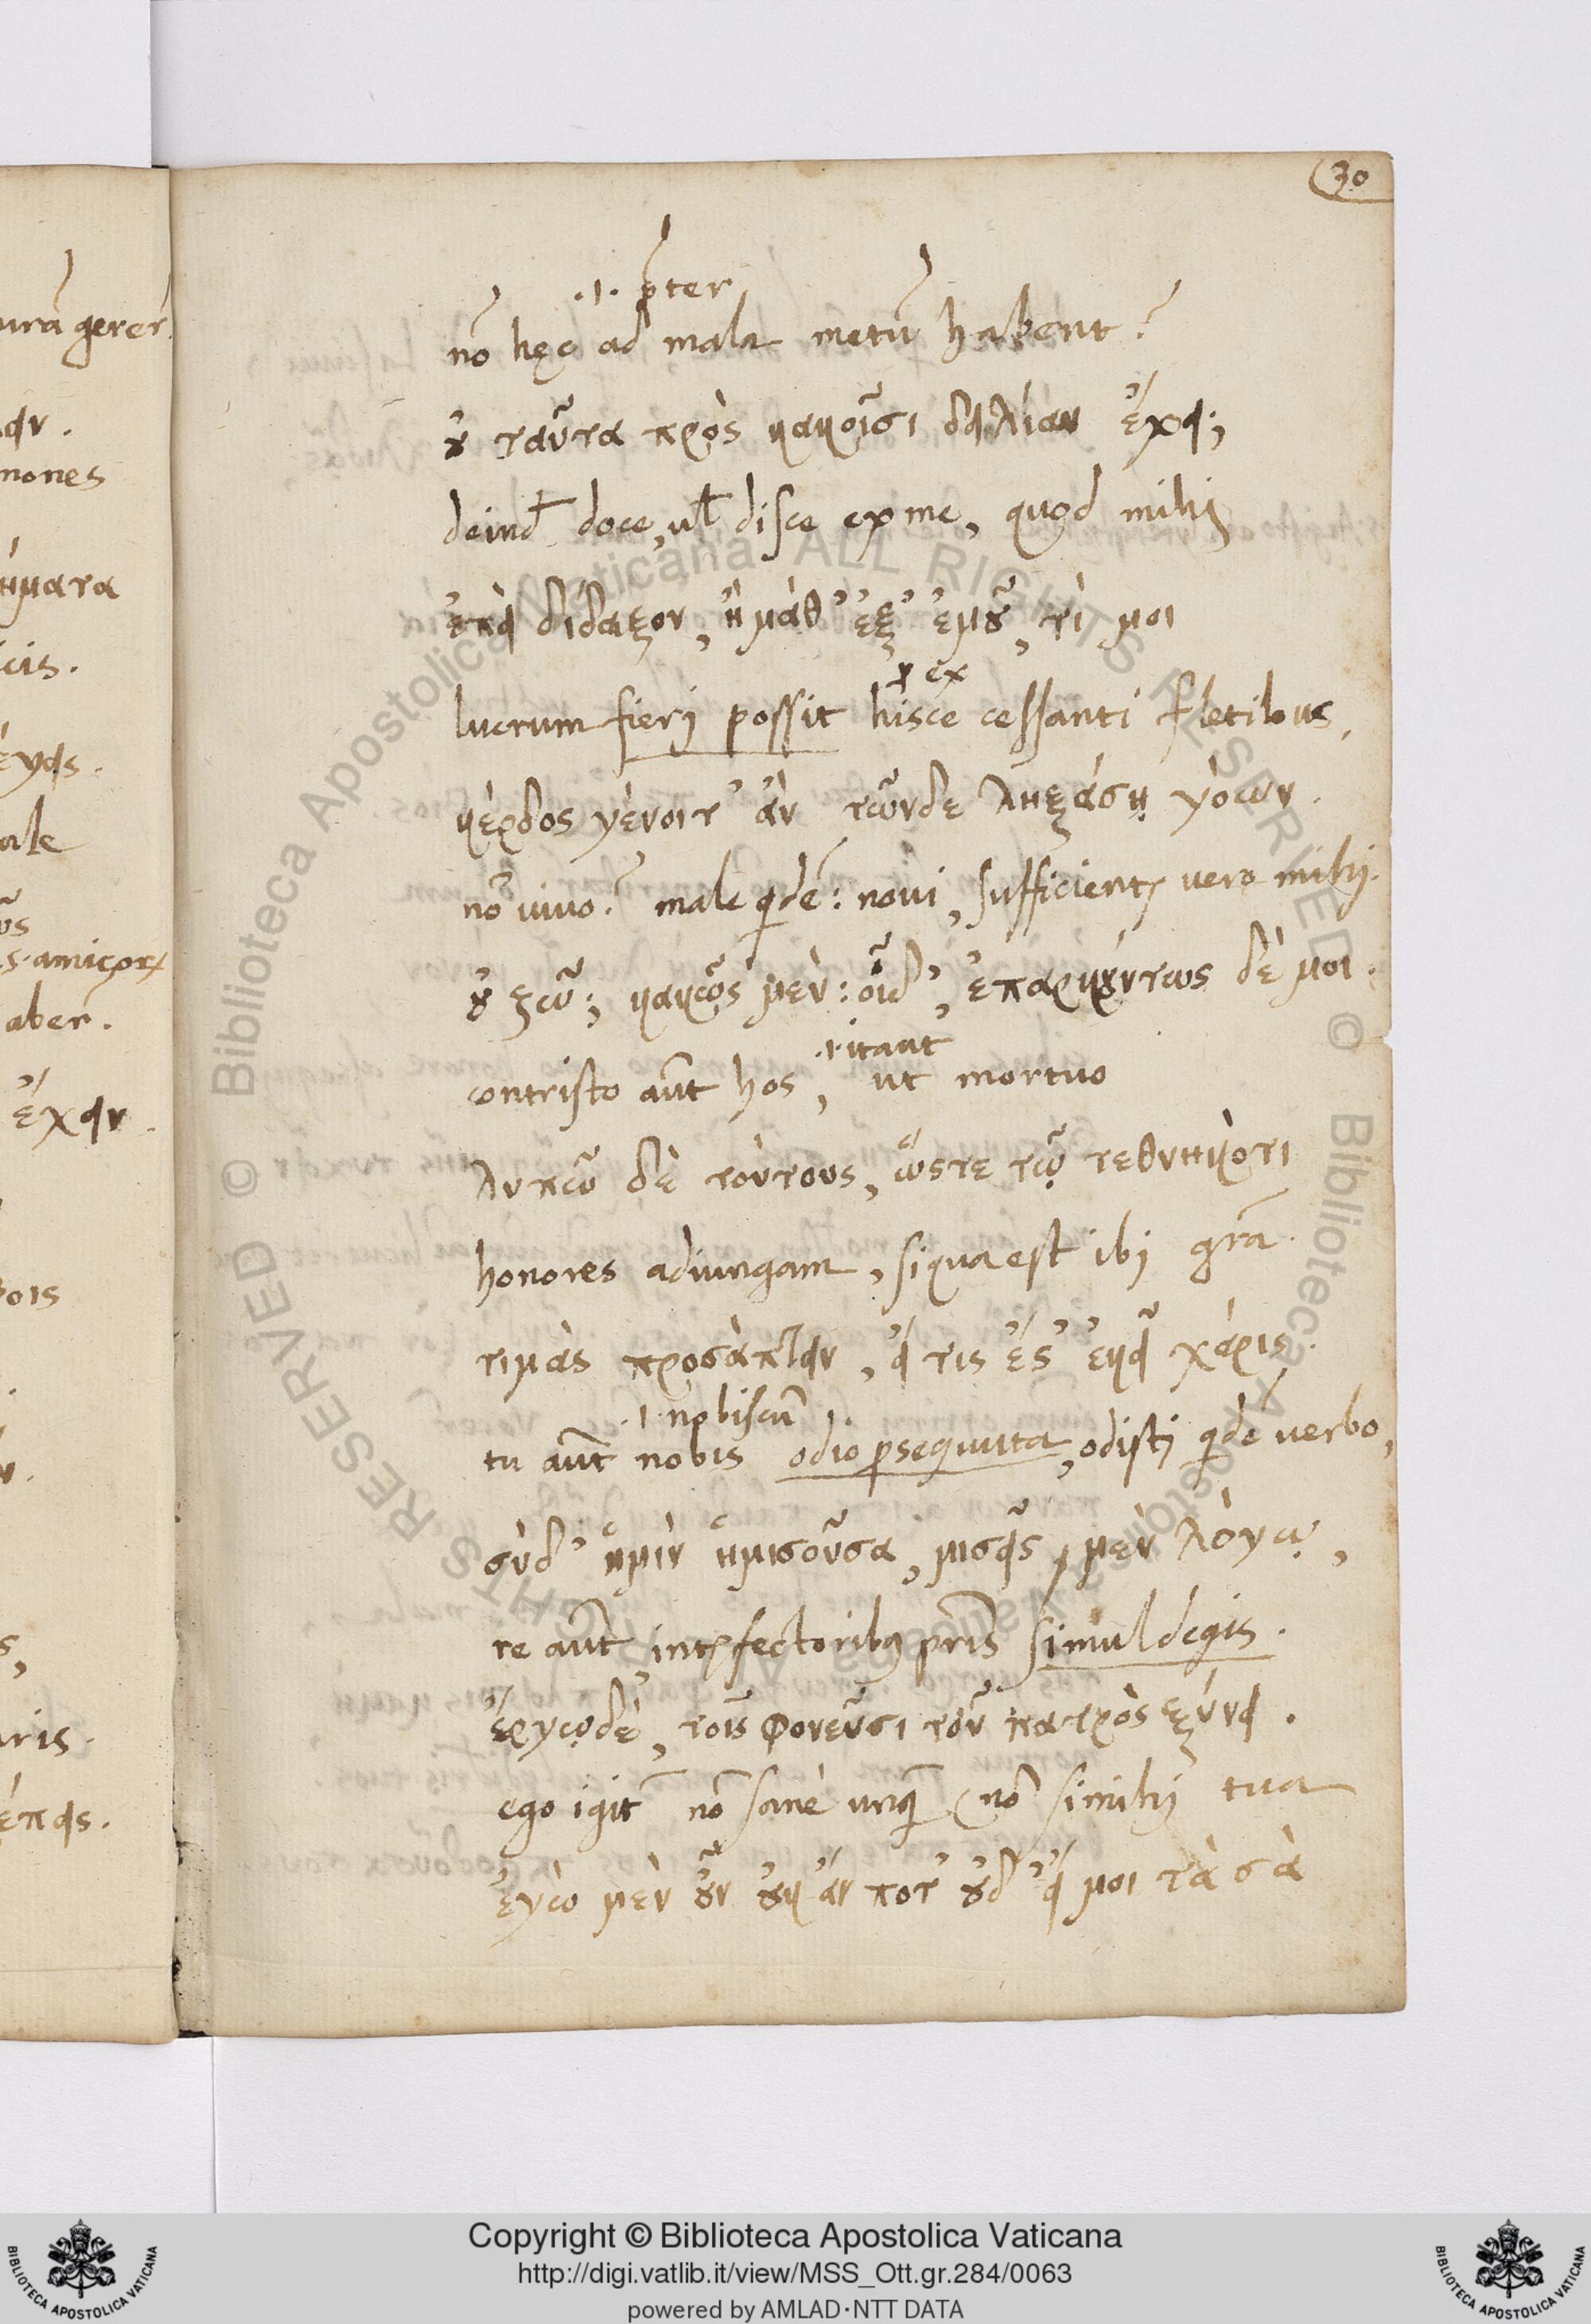 30
.i. p̄ter
nō hęc ad mala metū habent?
ȣ ταῦτα πρὸς κακοῖσι δειλίαν ἔχει;
deind doce, ul disce ex me, quod mihi
ἐπεὶ δίδαξον, ἢ μάθ' ἐξ' ἐμȣ͂, τί μοι
ex
lucrum fieri possit hisce cessanti fletibus,
κέρδος γένοιτ' ἂν τῶνδε ληξάσῃ γόων.
nō uivo? male qdē: novi, sufficient vero mihi.
ȣ ζῶ; κακῶς μὲν: οἶδ', ἐπαρκȣ́ντως δέ μοι.
.i. itaut
contristo aūt hos, ut mortuo
λυπῶ δὲ τούτους, ὥστε τῷ τεθνηκότι
honores adiungam, si qua est ibi grā.
τιμὰς προσάπτειν, εἴ τις ἔς' ἐκεῖ χάρις.
.i. nobiscū .i.
tu aūt nobis odio psequuta, odisti qdē verbo,
σὺδ' ἡμὶν ἡμισοῦσα, μισεῖς μὲν λόγῳ,
re aūt intfectoribq pris simul degis.
ἔργῳ δὲ, τοῖς φονεῦσι τοῦ πατρὸς ξύνει.
ego igit nō sanè unq̄ (nō si mihi tua
ἐγὼ μὲν ȣ̓͂ν ȣ̓κ ἄν ποτ' ȣ̓δ' εἴ μοι τὰ σὰ
urā gerer.
ειν.
mones
ήματα
cis.
έγεις.
ale
s. amicor
aber.
ἔχειν.
οις
ris.
έπεις.
Copyright © Biblioteca Apostolica Vaticana
http://digi.vatlib.it/view/MSS_Ott.gr.284/0063
powered by AMLAD·NTT DATA
BIBLIOTECA APOSTOLICA VATICANA
BIBLIOTECA APOSTOLICA VATICANA
© Biblioteca Apostolica Vaticana ALL RIGHTS RESERVED © Biblioteca Apostolica Vaticana ALL RIGHTS RESERVED